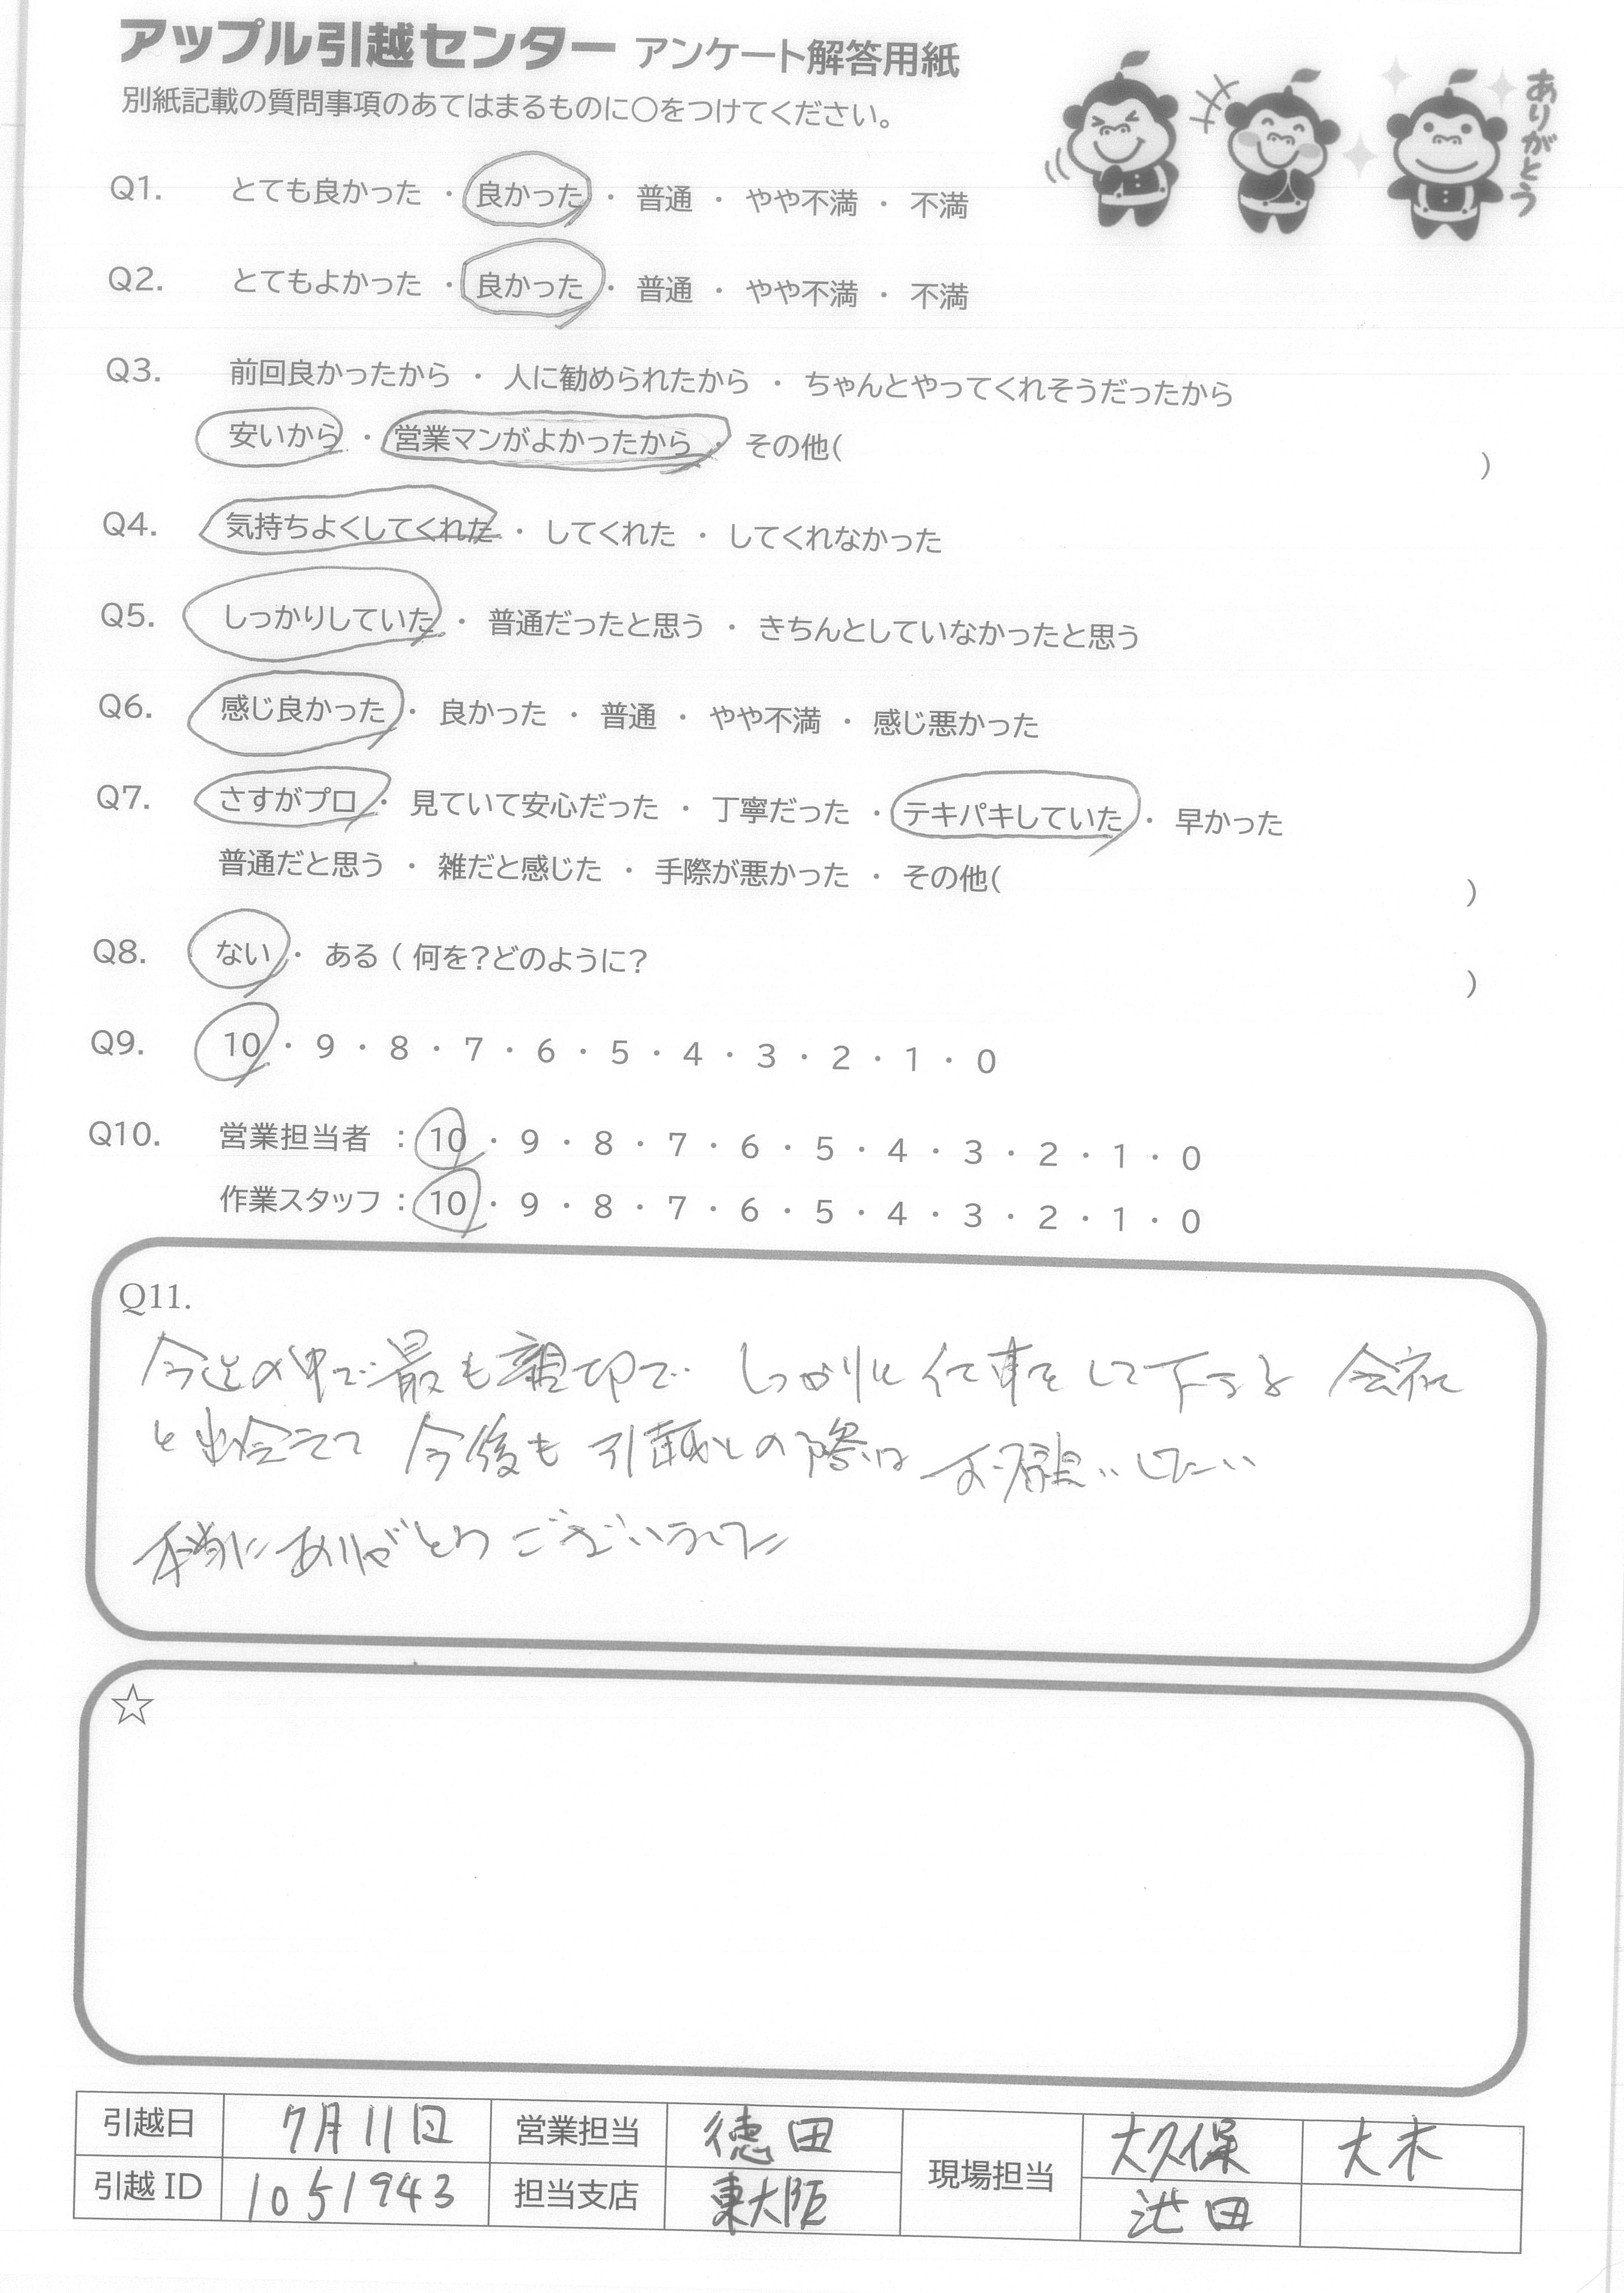 アップル引越センター アンケート解答用紙
別紙記載の質問事項のあてはまるものに〇をつけてください。
ありがとう
Q1. とても良かった ・ 良かった ・ 普通 ・ やや不満 ・ 不満
Q2. とてもよかった ・ 良かった ・ 普通 ・ やや不満 ・ 不満
Q3. 前回良かったから ・ 人に勧められたから ・ ちゃんとやってくれそうだったから
安いから ・ 営業マンがよかったから ・ その他( )
Q4. 気持ちよくしてくれた ・ してくれた ・ してくれなかった
Q5. しっかりしていた ・ 普通だったと思う ・ きちんとしていなかったと思う
Q6. 感じ良かった ・ 良かった ・ 普通 ・ やや不満 ・ 感じ悪かった
Q7. さすがプロ ・ 見ていて安心だった ・ 丁寧だった ・ テキパキしていた ・ 早かった
普通だと思う ・ 雑だと感じた ・ 手際が悪かった ・ その他( )
Q8. ない ・ ある ( 何を?どのように? )
Q9. 10 ・ 9 ・ 8 ・ 7 ・ 6 ・ 5 ・ 4 ・ 3 ・ 2 ・ 1 ・ 0
Q10. 営業担当者 : 10 ・ 9 ・ 8 ・ 7 ・ 6 ・ 5 ・ 4 ・ 3 ・ 2 ・ 1 ・ 0
作業スタッフ : 10 ・ 9 ・ 8 ・ 7 ・ 6 ・ 5 ・ 4 ・ 3 ・ 2 ・ 1 ・ 0
Q11.
今迄の中で最も親切で しっかりと仕事をして下さる 会社
と出会えて 今後も 引越しの際は お願いしたい
本当にありがとうございました
☆
引越日 7月11日 営業担当 徳田 現場担当 大久保 大木
引越 ID 1051943 担当支店 東大阪 池田